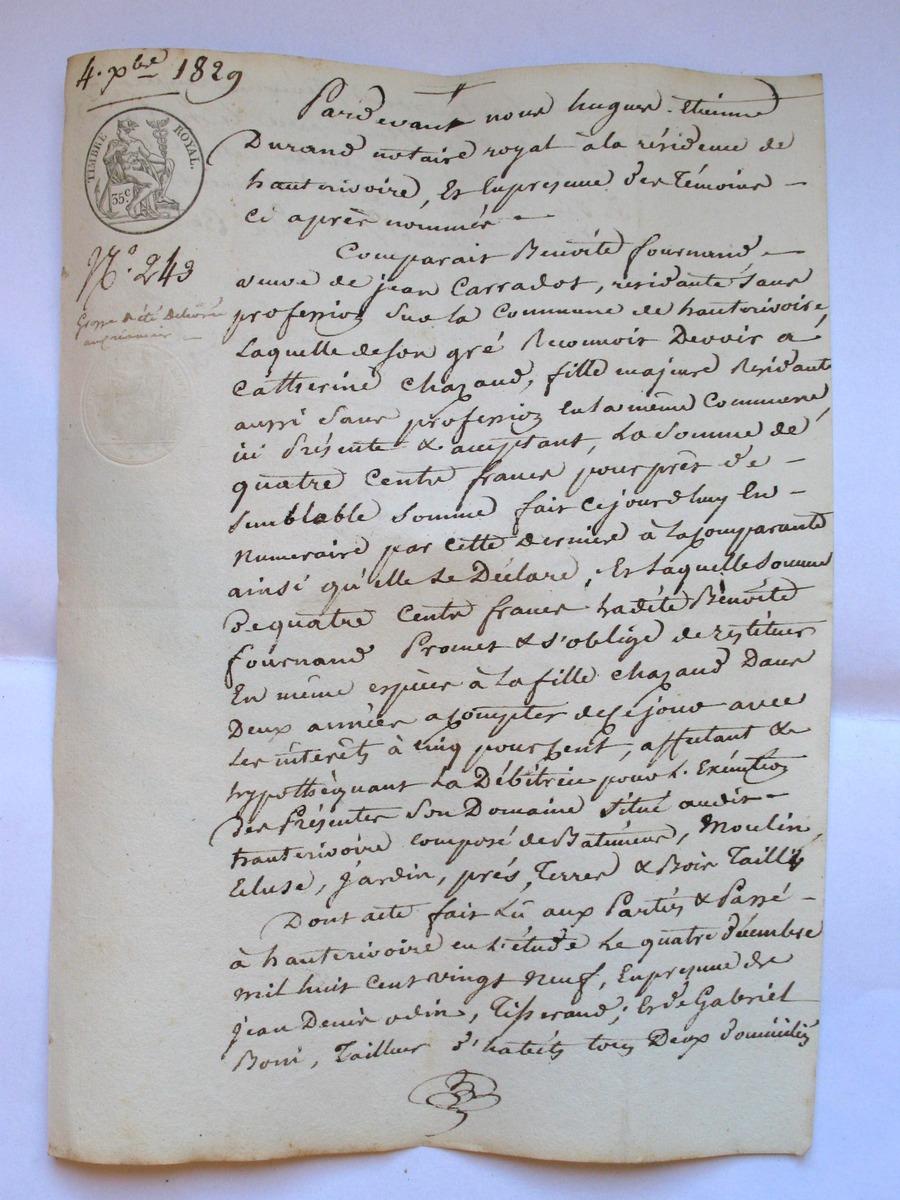 4. xbre 1829
TIMBRE ROYAL.
35c
No. 243
Grosse a été délivrée
au créancier
Pardevant nous hugues-Etienne
Durand notaire royal à la résidence de
hauterivoire, Et En presence des Témoins
ci après nommés
Comparait Benoîte fournand
veuve de jean Carradot, residante sans
profession sur la Commune de hauterivoire,
Laquelle de son gré Reconnoit Devoir à
Catherine Chazaud, fille majeure Residante
aussi sans profession En la même Commune,
ici Présente & acceptant, La Somme de
quatre Cents francs pour prêt de
Semblable Somme fait Cejourd'huy En
Numeraire par cette derniere à la Comparante
ainsi qu'elle Le Déclare, Et Laquelle Somme
De quatre Cents francs ladite Benoîte
fournand Promet & s'oblige de restituer
En même espèces à La fille chazaud Dans
Deux années a compter de ce jour avec
Les intérêts à cinq pour Cent, affectant &
hypothéquant La Débitrice pour L'Exécution
Des Présentes Son Domaine situé audit
hauterivoire composé de Batiments, Moulin,
Ecluse, Jardin, prés, Terres & Bois Taillis
Dont acte fait Lû aux Parties & Passé
à hauterivoire en L'étude Le quatre décembre
mil huit Cent vingt neuf, En presence de
Jean Denis odin, Tisserand, Et de Gabriel
Boni, Tailleur d'habits tous Deux domiciliés